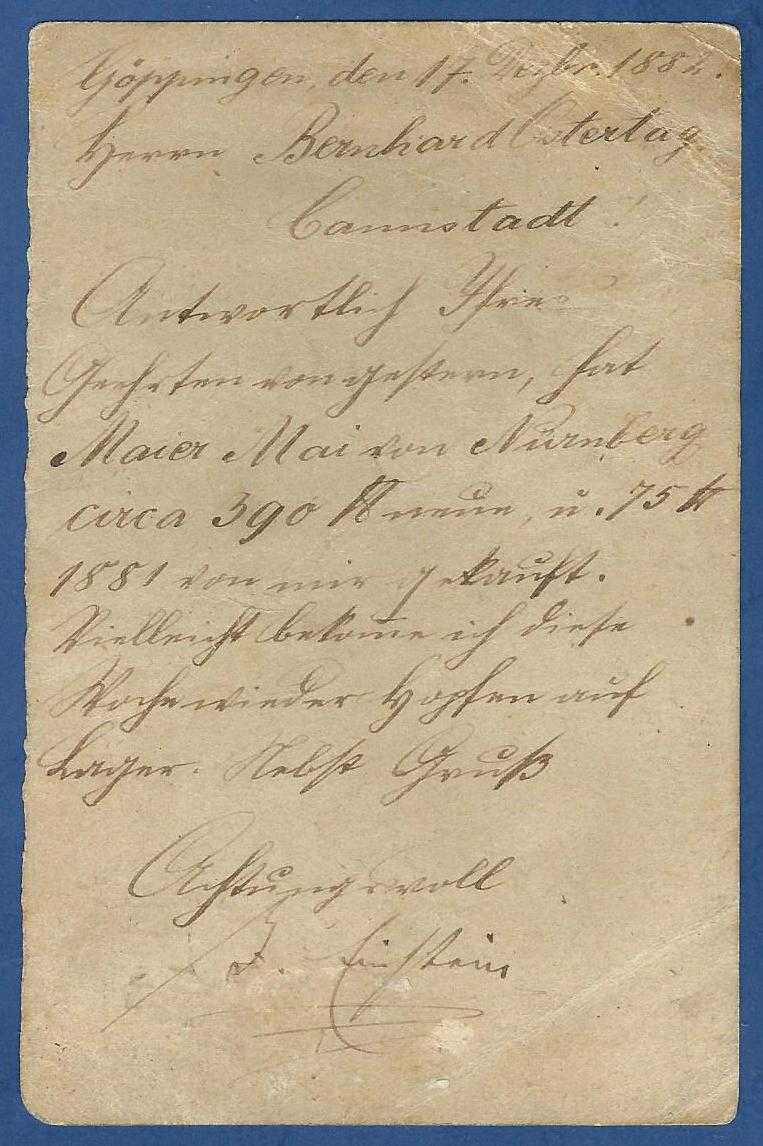 Göppingen, den 17. Dezbr. 1882.
Herrn Bernhard Ostertag
Cannstadt!
Antwortlich Ihres
Geehrten von gestern, hat
Maier Mai von Nürnberg
circa 390 ℔ neue, u. 75 ℔
1881 von mir gekauft.
Vielleicht bekom̅e ich diese
Woche wieder Hopfen auf
Lager. Nebst Gruß
Achtungsvoll
J. Einstein